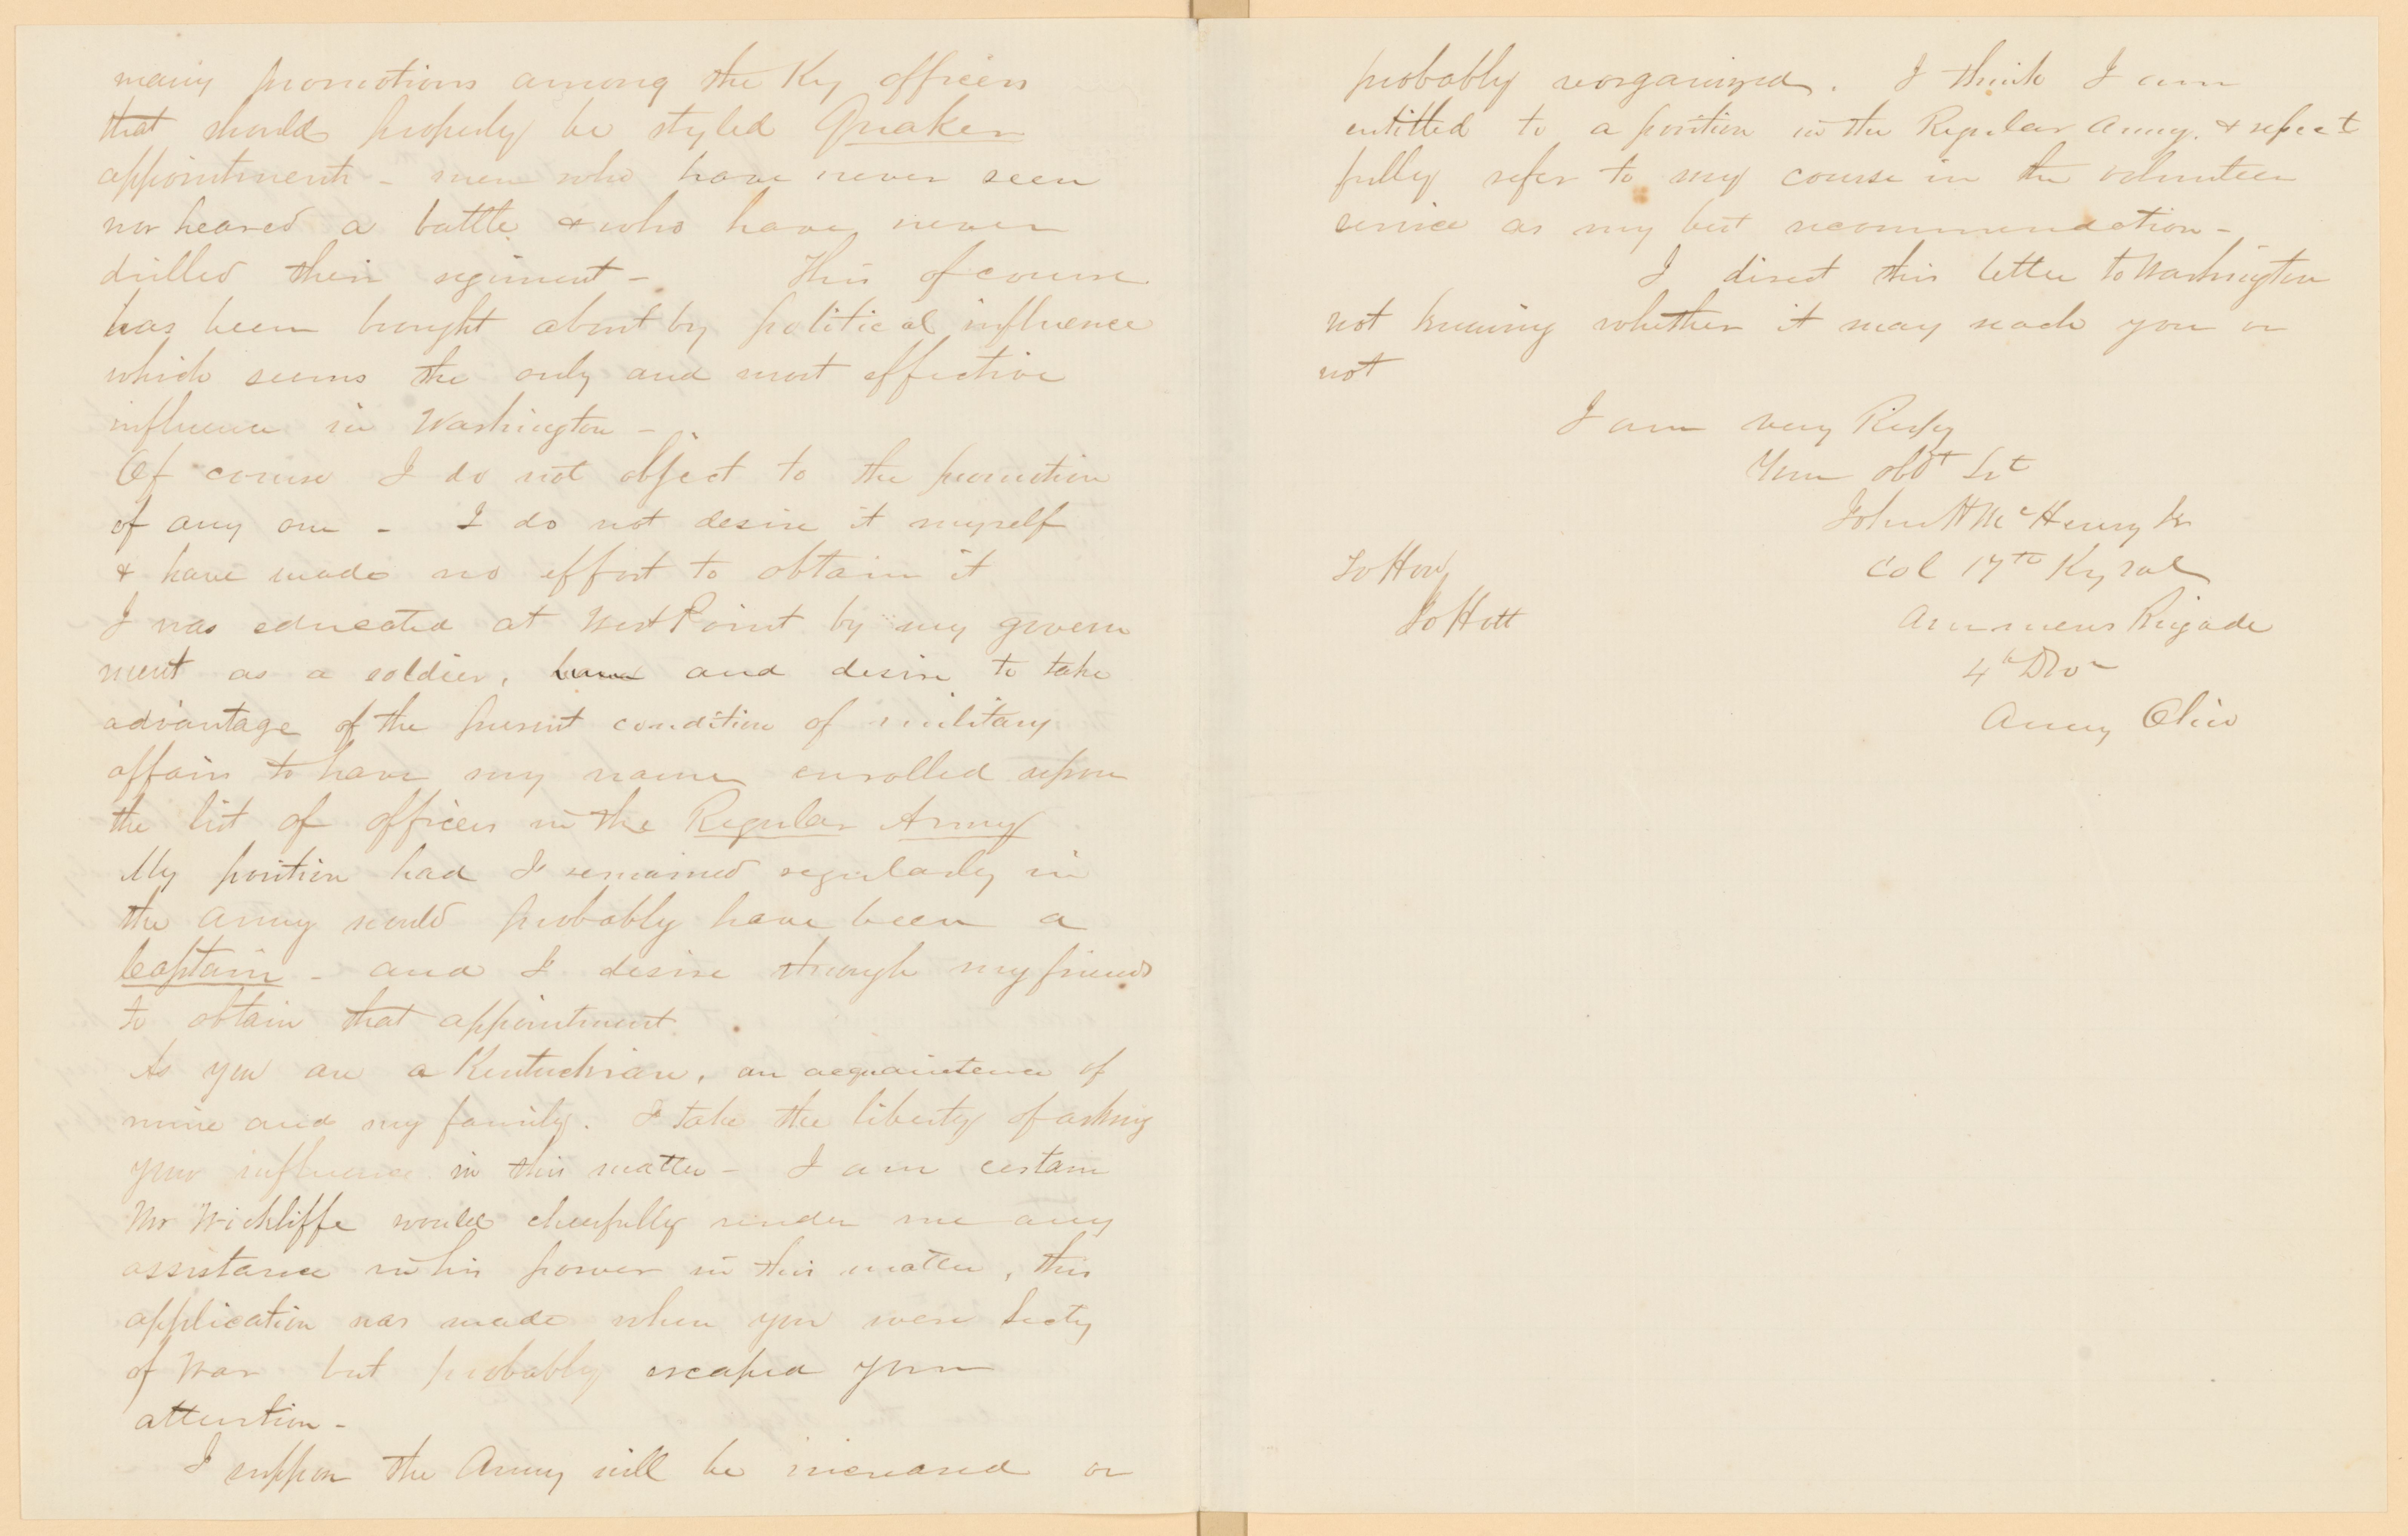 many promotions among the Ky officers
that should properly be styled Quaker
appointments - men who have never seen
nor heared a battle & who have never
drilled their regiment - This of course
has been brought about by political influence
which seems the only and most effective
influence in Washington -
Of course I do not object to the promotion
of any one - I do not desire it myself
& have made no effort to obtain it
I was educated at West Point by my govern
ment as a soldier, and desire to take
advantage of the present condition of military
affairs to have my name enrolled upon
the list of officers in the Regular Army
My position had I remained regularly in
the Army would probably have been a
Captain - and I desire through my friends
to obtain that appointment
As you are a Kentuckian, an acquaintence of
mine and my family. I take the liberty of asking
your influence in this matter - I am certain
Mr Wickliffe would cheerfully render me any
assistance in his power in this matter, this
application was made when you were Secty
of War but probably escaped your
attention -
I suppose the Army will be increased or
probably reorganized. I think I am
entitled to a position in the Regular Army. & respect
fully refer to my course in the volunteer
service as my best recommendation -
I direct this letter to Washington
not knowing whether it may reach you or
not
I am very Respy
Your obdt Svt
John H McHenry Jr
Col 17th Ky Vol
Ammens Brigade
4th Divn
Army Ohio
To Hon
Jo Holt